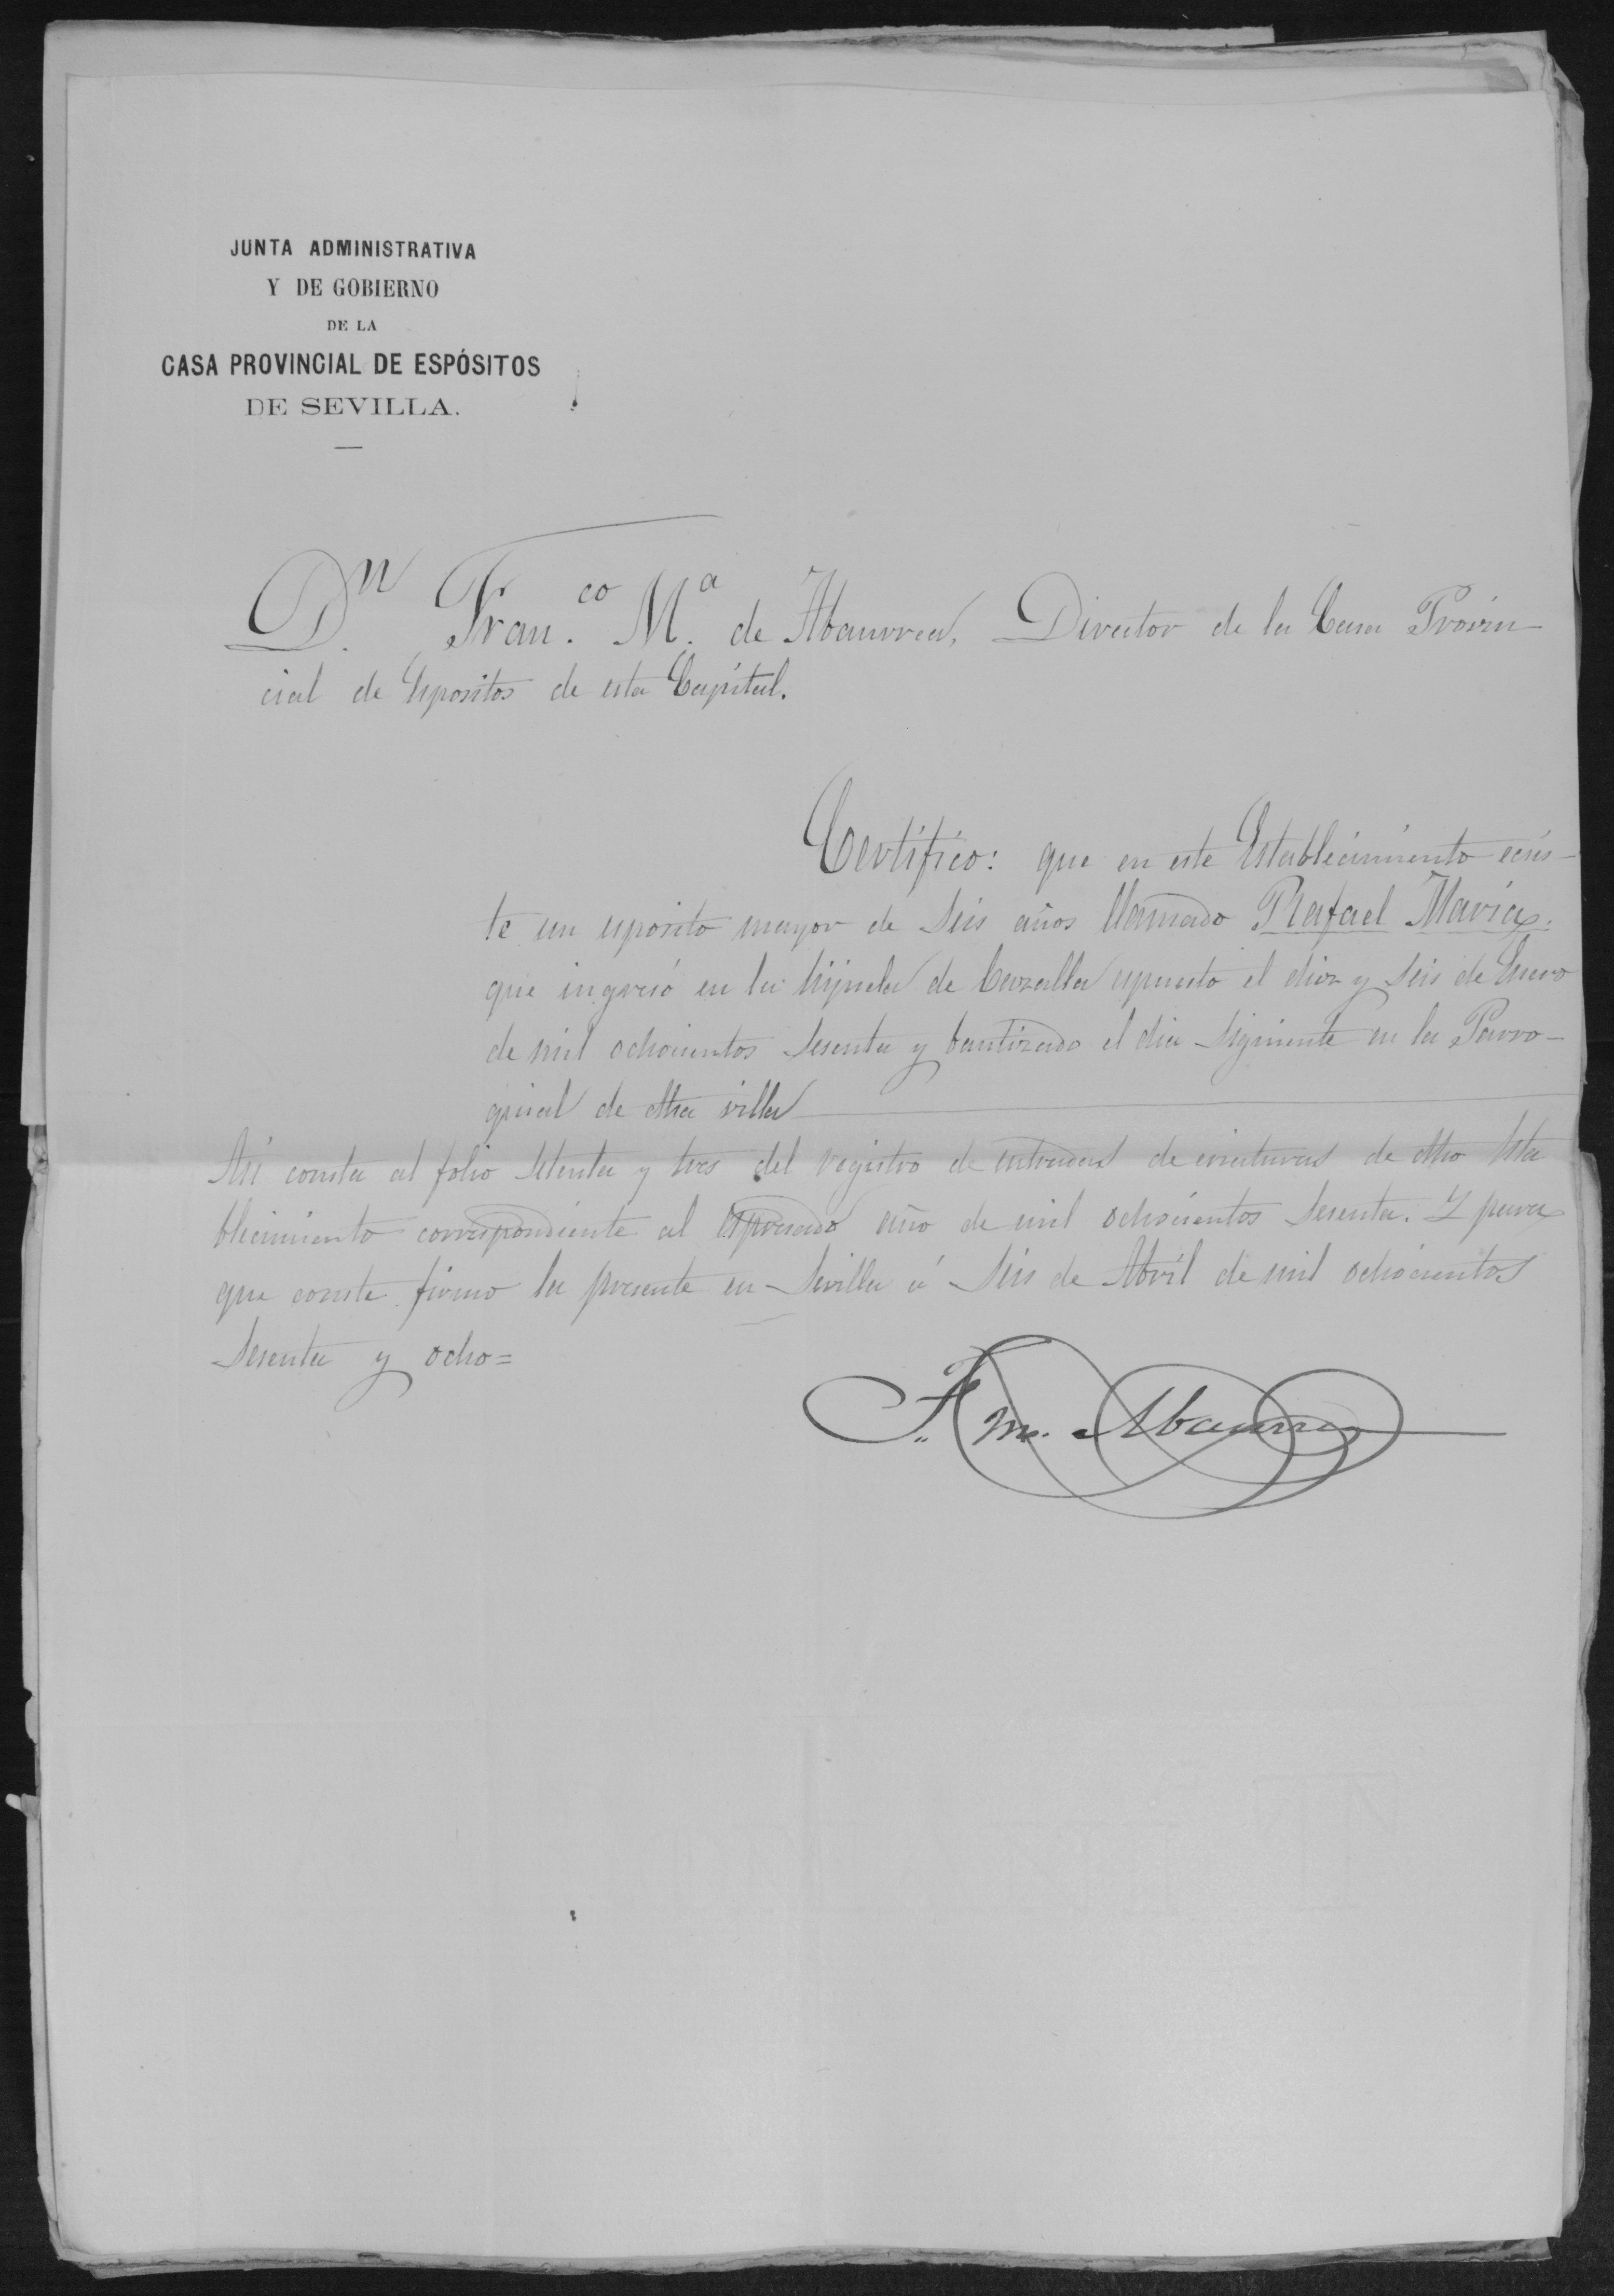 JUNTA ADMINISTRATIVA
Y DE GOBIERNO
DE LA
CASA PROVINCIAL DE ESPÓSITOS
DE SEVILLA.
Dn. Fran.co M.a de Abaurrea, Director de la Casa Provin
cial de Espositos de esta Capital.
Certifico: que en este Establecimiento ecsis-
te un esposito mayor de seis años llamado Rafael Maria,
que ingresó en la hijuela de Cazalla espuesto el diez y seis de Enero
de mil ochocientos sesenta y bautizado el dia siguiente en la Parro-
quial de dha villa
Asi consta al folio setenta y tres del registro de entradas de criaturas de dho Esta
blecimiento correspondiente al espresado año de mil ochocientos sesenta. Y para
que conste firmo la presente en Sevilla á seis de Abril de mil ochocientos
sesenta y ocho=
F. M. Abaurrea